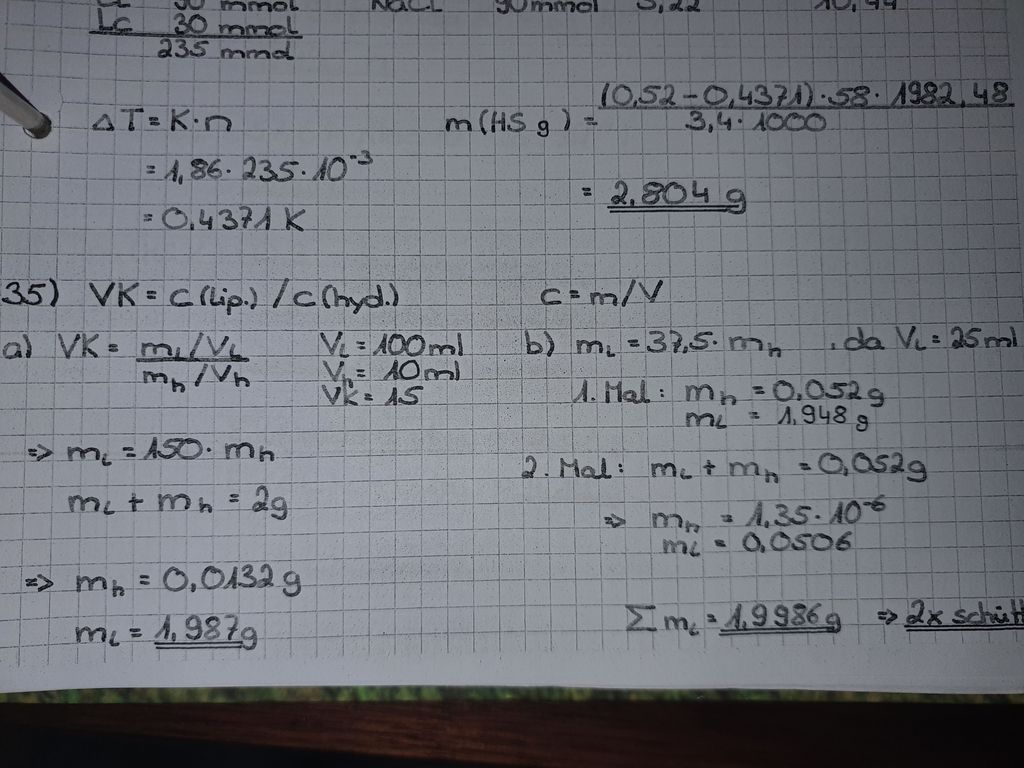 30 mmol NaCl 90 mmol 5,22
Lc 30 mmol
235 mmol
ΔT = K·n
= 1,86 · 235 · 10⁻³
= 0,4371 K
m(HSg) = (0,52 - 0,4371) · 58 · 1982,48
3,4 · 1000
= 2,804 g
35) VK = c(Lip.) / c(hyd.) c = m/V
a) VK = mL/VL
mh/Vh
VL = 100 ml
Vh = 10 ml
VK = 15
=> mL = 150 · mh
mL + mh = 2g
=> mh = 0,0132 g
mL = 1,987 g
b) mL = 37,5 · mh , da VL = 25 ml
1. Mal: mh = 0,052 g
mL = 1,948 g
2. Mal: mL + mh = 0,052 g
=> mh = 1,35 · 10⁻⁶
mL = 0,0506
Σ mL = 1,9986 g => 2x schütt